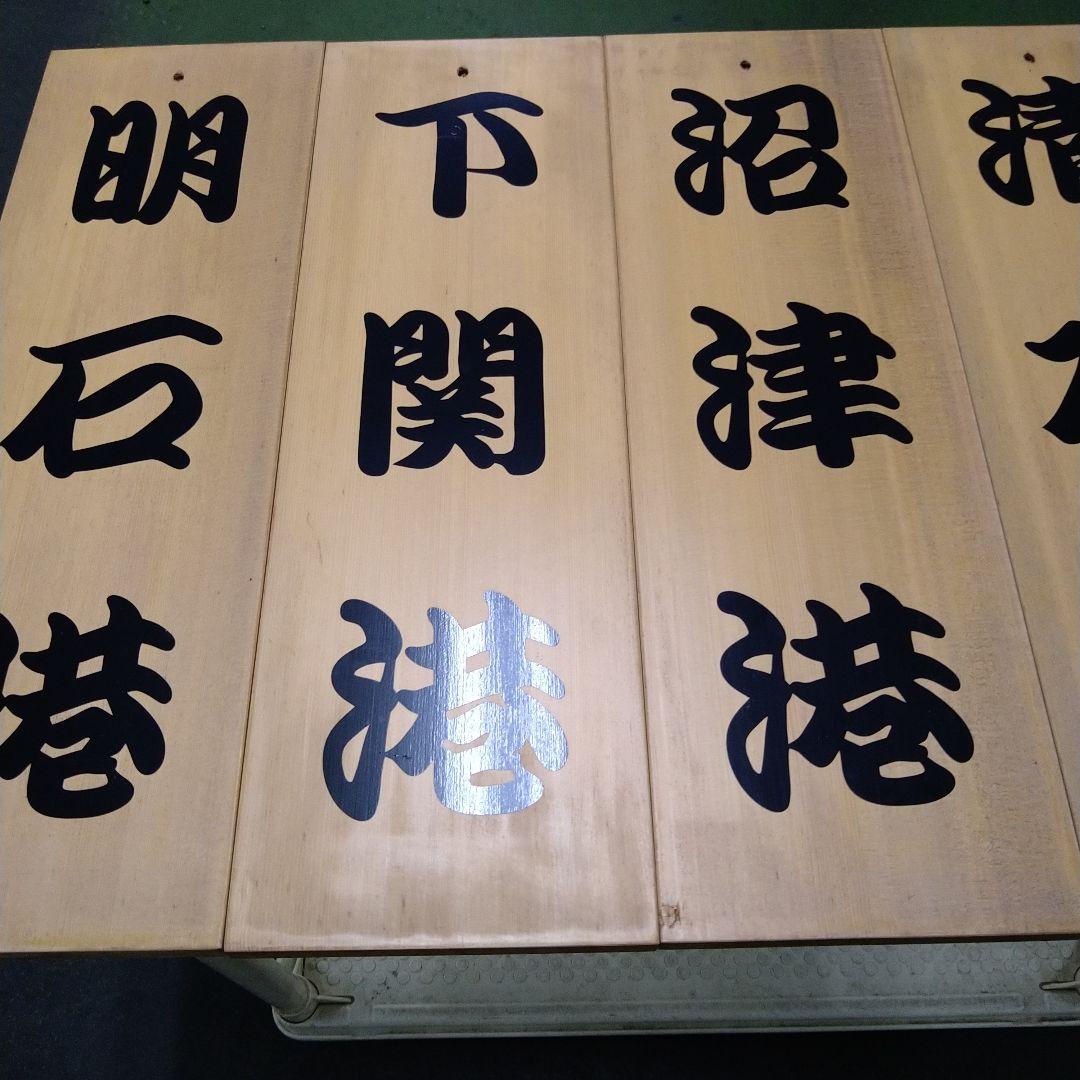 明石港
下関港
沼津港
清